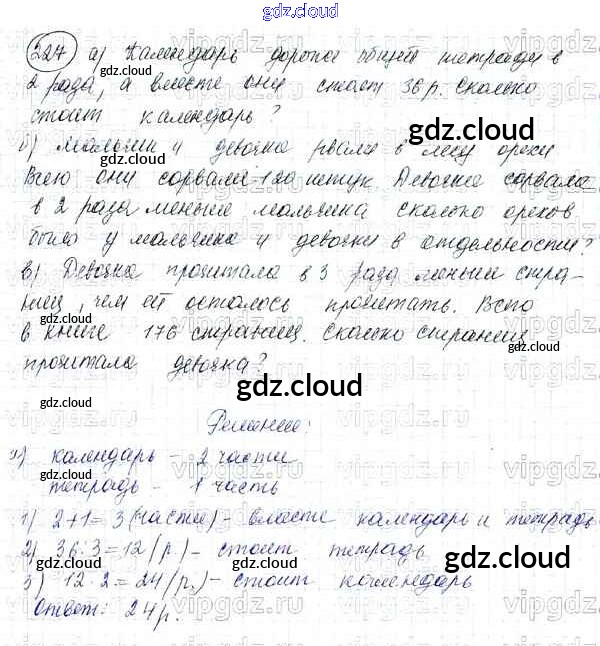 gdz.cloud
227 а) Календарь дороже общей тетради в
2 раза, а вместе они стоят 36 р. Сколько
стоит календарь?
б) Мальчик и девочка рвали в лесу орехи
Всего они сорвали 120 штук. Девочка сорвала
в 2 раза меньше мальчика сколько орехов
было у мальчика и девочки в отдельности?
в) Девочка прочитала в 3 раза меньше стра-
ниц, чем ей осталось прочитать. Всего
в книге 176 страниц. Сколько страниц
прочитала девочка?
Решение:
а) календарь - 2 части
тетрадь - 1 часть
1) 2+1=3 (части) - вместе календарь и тетрадь
2) 36:3=12 (р.) - стоит тетрадь
3) 12·2=24 (р.) - стоит календарь
Ответ: 24 р.